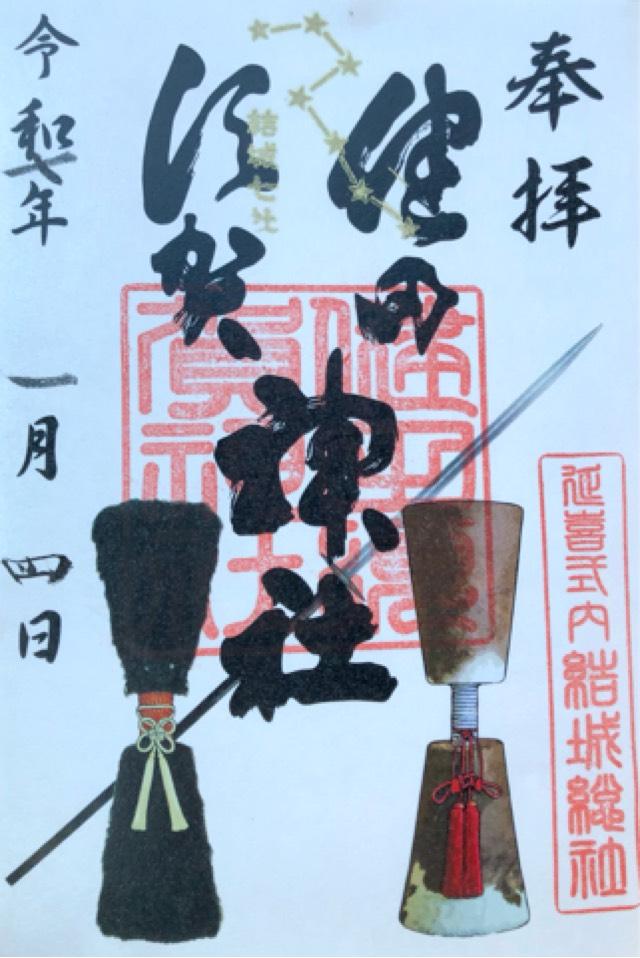 奉拝
健田
須賀
神社
結城七社
延喜式内結城総社
令和七年
一月
四日